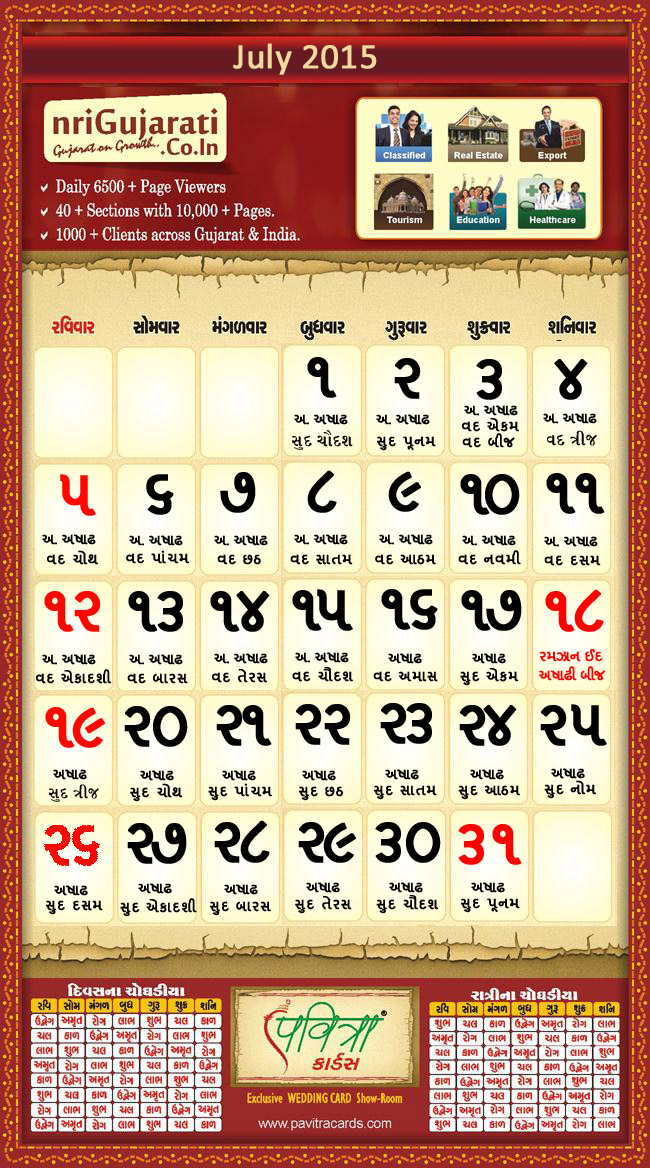 July 2015
nriGujarati
Gujarat on Growth..
.Co.In
Daily 6500 + Page Viewers
40 + Sections with 10,000 + Pages.
1000 + Clients across Gujarat & India.
Classified Real Estate Export
Tourism Education Healthcare
રવિવાર સોમવાર મંગળવાર બુધવાર ગુરૂવાર શુક્રવાર શનિવાર
૧ ૨ ૩ ૪
અ. અષાઢ અ. અષાઢ અ. અષાઢ અ. અષાઢ
સુદ ચૌદશ સુદ પૂનમ વદ એકમ વદ ત્રીજ
વદ બીજ
૫ ૬ ૭ ૮ ૯ ૧૦ ૧૧
અ. અષાઢ અ. અષાઢ અ. અષાઢ અ. અષાઢ અ. અષાઢ અ. અષાઢ અ. અષાઢ
વદ ચોથ વદ પાંચમ વદ છઠ વદ સાતમ વદ આઠમ વદ નવમી વદ દસમ
૧૨ ૧૩ ૧૪ ૧૫ ૧૬ ૧૭ ૧૮
અ. અષાઢ અ. અષાઢ અ. અષાઢ અ. અષાઢ અષાઢ અષાઢ રમઝાન ઈદ
વદ એકાદશી વદ બારસ વદ તેરસ વદ ચૌદશ વદ અમાસ સુદ એકમ અષાઢી બીજ
૧૯ ૨૦ ૨૧ ૨૨ ૨૩ ૨૪ ૨૫
અષાઢ અષાઢ અષાઢ અષાઢ અષાઢ અષાઢ અષાઢ
સુદ ત્રીજ સુદ ચોથ સુદ પાંચમ સુદ છઠ સુદ સાતમ સુદ આઠમ સુદ નોમ
૨૬ ૨૭ ૨૮ ૨૯ ૩૦ ૩૧
અષાઢ અષાઢ અષાઢ અષાઢ અષાઢ અષાઢ
સુદ દસમ સુદ એકાદશી સુદ બારસ સુદ તેરસ સુદ ચૌદશ સુદ પૂનમ
દિવસના ચોઘડીયા
રવિ સોમ મંગળ બુધ ગુરૂ શુક્ર શનિ
ઉદ્વેગ અમૃત રોગ લાભ શુભ ચલ કાળ
ચલ કાળ ઉદ્વેગ અમૃત રોગ લાભ શુભ
લાભ શુભ ચલ કાળ ઉદ્વેગ અમૃત રોગ
અમૃત રોગ લાભ શુભ ચલ કાળ ઉદ્વેગ
કાળ ઉદ્વેગ અમૃત રોગ લાભ શુભ ચલ
શુભ ચલ કાળ ઉદ્વેગ અમૃત રોગ લાભ
રોગ લાભ શુભ ચલ કાળ ઉદ્વેગ અમૃત
ઉદ્વેગ અમૃત રોગ લાભ શુભ ચલ કાળ
પવિત્રા®
કાર્ડસ
Exclusive WEDDING CARD Show-Room
www.pavitracards.com
રાત્રીના ચોઘડીયા
રવિ સોમ મંગળ બુધ ગુરૂ શુક્ર શનિ
શુભ ચલ કાળ ઉદ્વેગ અમૃત રોગ લાભ
અમૃત રોગ લાભ શુભ ચલ કાળ ઉદ્વેગ
ચલ કાળ ઉદ્વેગ અમૃત રોગ લાભ શુભ
રોગ લાભ શુભ ચલ કાળ ઉદ્વેગ અમૃત
કાળ ઉદ્વેગ અમૃત રોગ લાભ શુભ ચલ
લાભ શુભ ચલ કાળ ઉદ્વેગ અમૃત રોગ
ઉદ્વેગ અમૃત રોગ લાભ શુભ ચલ કાળ
શુભ ચલ કાળ ઉદ્વેગ અમૃત રોગ લાભ